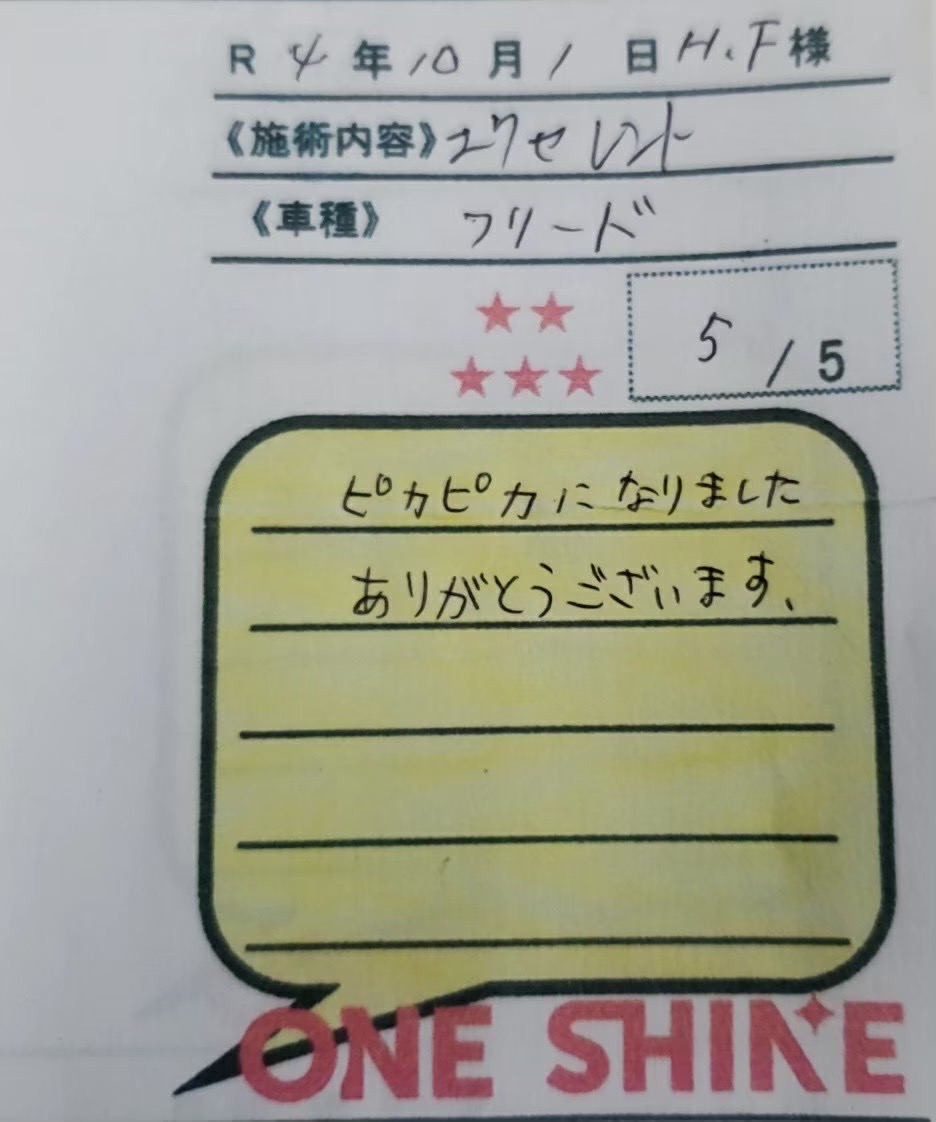 R 4 年 10 月 1 日 H.F 様
《施術内容》エクセレント
《車種》 フリード
★★
★★★
5 / 5
ピカピカになりました
ありがとうございます、
ONE SHINE